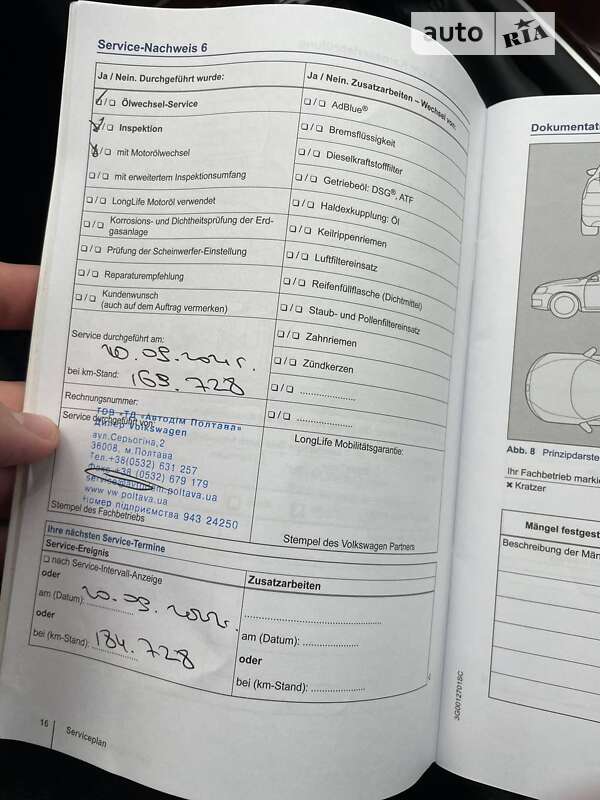 auto RIA
Service-Nachweis 6
Ja / Nein. Durchgeführt wurde:
❏ / ❏ Ölwechsel-Service
❏ / ❏ Inspektion
❏ / ❏ mit Motorölwechsel
❏ / ❏ mit erweitertem Inspektionsumfang
❏ / ❏ LongLife Motoröl verwendet
❏ / ❏ Korrosions- und Dichtheitsprüfung der Erd-
gasanlage
❏ / ❏ Prüfung der Scheinwerfer-Einstellung
❏ / ❏ Reparaturempfehlung
❏ / ❏ Kundenwunsch
(auch auf dem Auftrag vermerken)
Ja / Nein. Zusatzarbeiten – Wechsel von:
❏ / ❏ AdBlue®
❏ / ❏ Bremsflüssigkeit
❏ / ❏ Dieselkraftstofffilter
❏ / ❏ Getriebeöl: DSG®, ATF
❏ / ❏ Haldexkupplung: Öl
❏ / ❏ Keilrippenriemen
❏ / ❏ Luftfiltereinsatz
❏ / ❏ Reifenfüllflasche (Dichtmittel)
❏ / ❏ Staub- und Pollenfiltereinsatz
❏ / ❏ Zahnriemen
❏ / ❏ Zündkerzen
❏ / ❏ ....................
❏ / ❏ ....................
Service durchgeführt am:
bei km-Stand: 169.728
Rechnungsnummer:
Service durchgeführt von:
ТОВ «ТД «Автодім Полтава»
Дилер Volkswagen
вул.Серьогіна,2
36008, м.Полтава
Тел.+38(0532) 631 257
Факс +38 (0532) 679 179
service@avtodom.poltava.ua
www vw poltava.ua
Номер підприємства 943 24250
Stempel des Fachbetriebs
LongLife Mobilitätsgarantie:
Stempel des Volkswagen Partners
Ihre nächsten Service-Termine
Service-Ereignis
❏ nach Service-Intervall-Anzeige
oder
am (Datum):
oder
bei (km-Stand): 184.728
Zusatzarbeiten
am (Datum): ....................
oder
bei (km-Stand): ....................
16
Serviceplan
3G0012701SC
Dokumentat
Abb. 8 Prinzipdarste
Ihr Fachbetrieb markie
✖ Kratzer
Mängel festgest
Beschreibung der Män